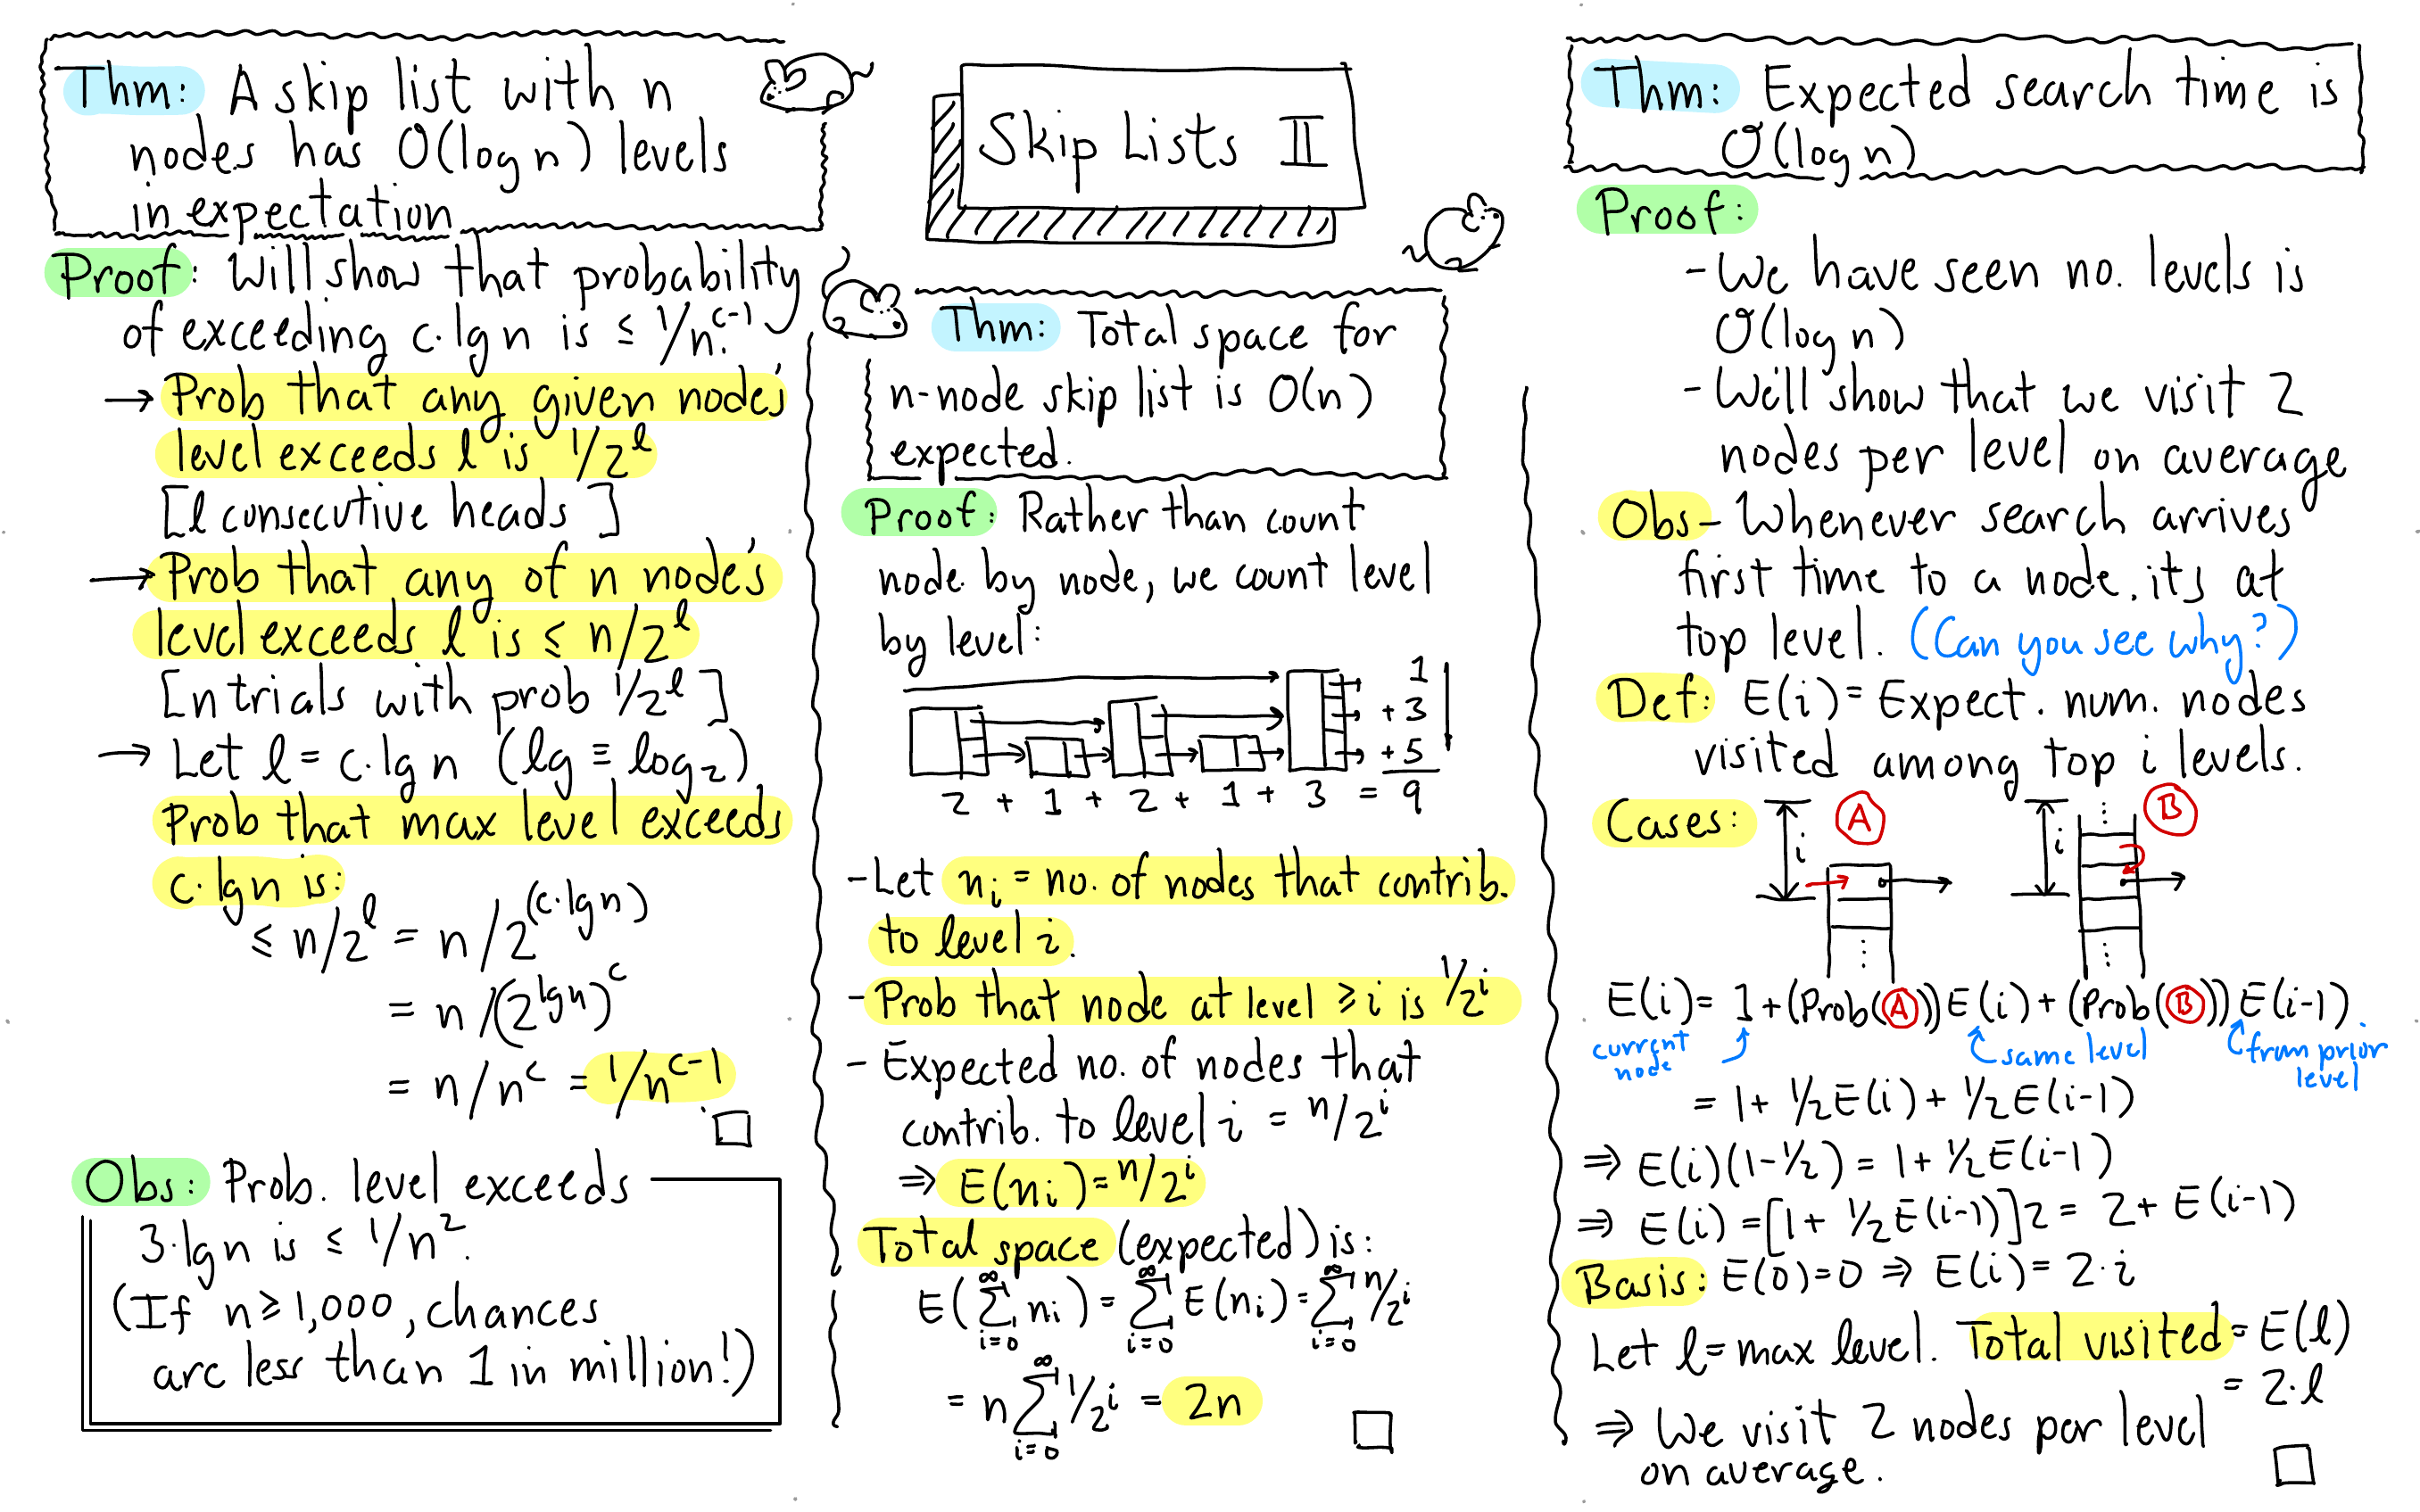 Thm: A skip list with n
nodes has O(log n) levels
in expectation
Proof: Will show that probability
of exceeding c·lg n is ≤ 1/n^(c-1).
→ Prob that any given node's
level exceeds l is 1/2^l
[l consecutive heads]
→ Prob that any of n node's
level exceeds l is ≤ n/2^l
[n trials with prob 1/2^l]
→ Let l = c·lg n (lg ≡ log₂)
Prob that max level exceeds
c·lg n is:
≤ n/2^l = n/2^(c·lg n)
= n/(2^(lg n))^c
= n/n^c = 1/n^(c-1)
Obs: Prob. level exceeds
3·lg n is ≤ 1/n².
(If n ≥ 1,000, chances
are less than 1 in million!)
Skip Lists II
Thm: Total space for
n-node skip list is O(n)
expected.
Proof: Rather than count
node by node, we count level
by level:
1
+3
+5
2 + 1 + 2 + 1 + 3 = 9
-Let nᵢ = no. of nodes that contrib.
to level i.
-Prob that node at level ≥ i is 1/2^i
- Expected no. of nodes that
contrib. to level i = n/2^i
⇒ E(nᵢ) = n/2^i
Total space (expected) is:
E(∑_{i=0}^∞ nᵢ) = ∑_{i=0}^∞ E(nᵢ) = ∑_{i=0}^∞ n/2^i
= n ∑_{i=0}^∞ 1/2^i = 2n
Thm: Expected search time is
O(log n)
Proof:
-We have seen no. levels is
O(log n)
-We'll show that we visit 2
nodes per level on average
Obs- Whenever search arrives
first time to a node, its at
top level. (Can you see why?)
Def: E(i) = Expect. num. nodes
visited among top i levels.
Cases: i A i B
E(i) = 1 + (Prob(A))E(i) + (Prob(B))E(i-1)
current node same level from prior level
= 1 + 1/2E(i) + 1/2E(i-1)
⇒ E(i)(1-1/2) = 1 + 1/2E(i-1)
⇒ E(i) = [1 + 1/2E(i-1)]2 = 2 + E(i-1)
Basis: E(0) = 0 ⇒ E(i) = 2·i
Let l = max level. Total visited = E(l)
= 2·l
⇒ We visit 2 nodes per level
on average.